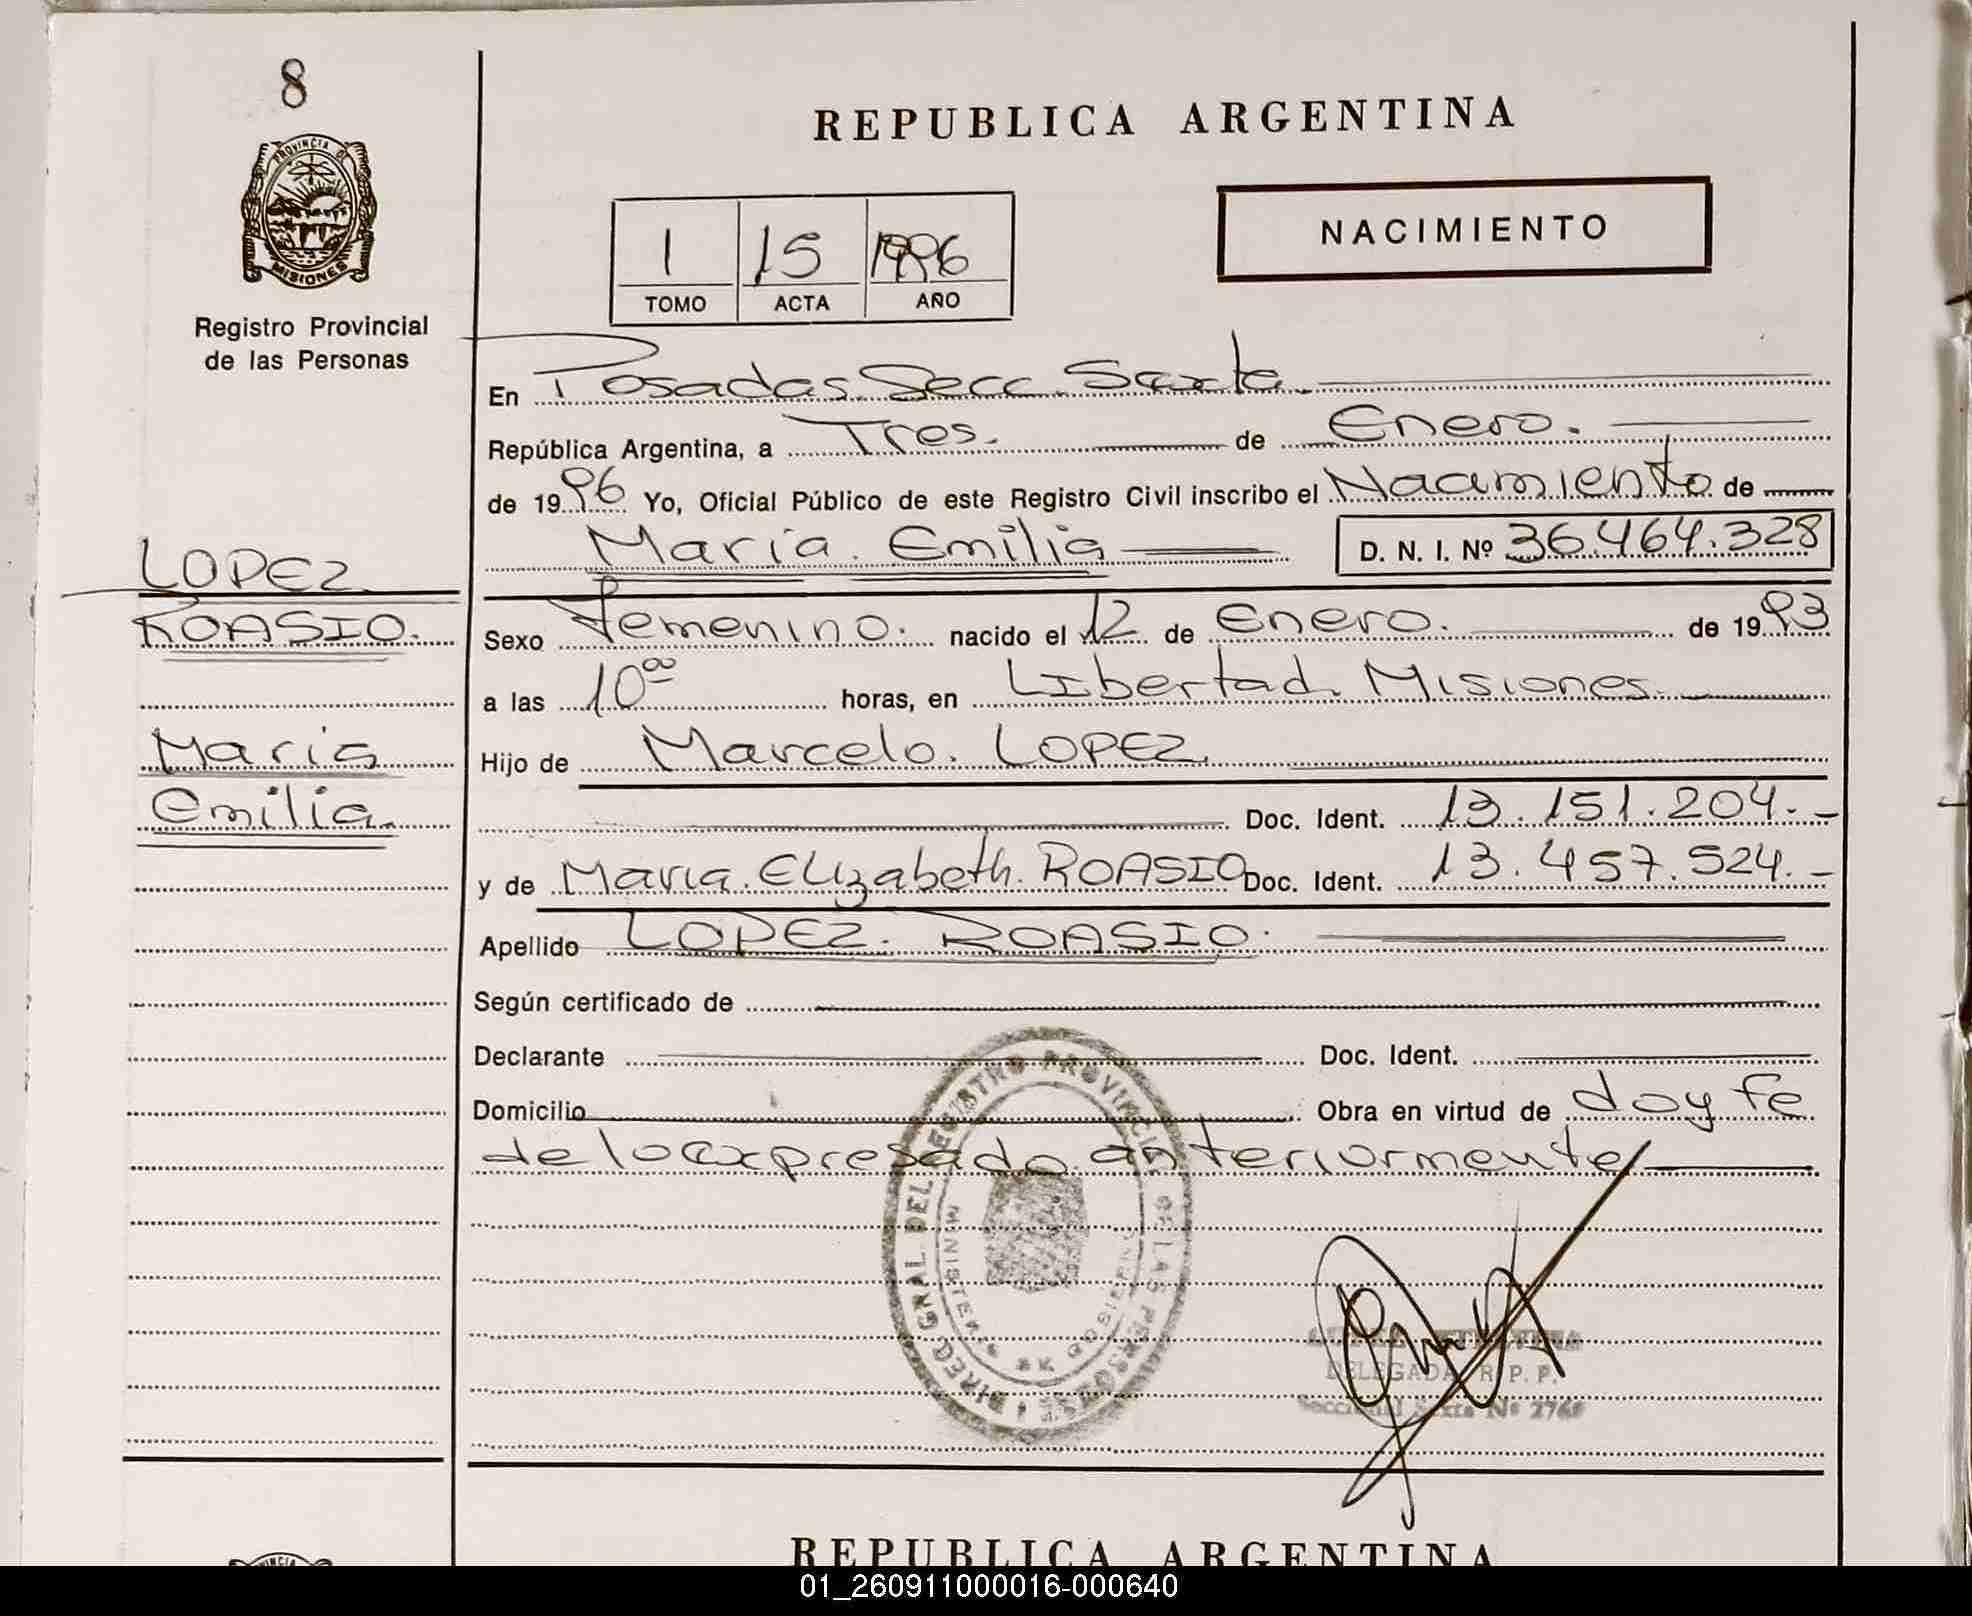 8
PROVINCIA DE
MISIONES
Registro Provincial
de las Personas
REPUBLICA ARGENTINA
NACIMIENTO
1 15 1996
TOMO ACTA AÑO
En Posadas Secc. Sexta
República Argentina, a Tres. de Enero.
de 1996 Yo, Oficial Público de este Registro Civil inscribo el Nacimiento de
Maria. Emilia D. N. I. Nº 36.464.328
LOPEZ
ROASIO.
Maria
Emilia.
Sexo Femenino. nacido el 12 de Enero. de 1993
a las 10⁰⁰ horas, en Libertad. Misiones.
Hijo de Marcelo. LOPEZ.
Doc. Ident. 13.151.204.-
y de Maria. Elizabeth. ROASIO Doc. Ident. 13.457.524.-
Apellido LOPEZ. ROASIO.
Según certificado de
Declarante Doc. Ident.
Domicilio Obra en virtud de doy fe
de lo expresado anteriormente
DIREC. GRAL. DEL REGISTRO PROVINCIAL DE LAS PERSONAS
MINISTERIO DE GOBIERNO
DELEGADA R. P. P.
Seccional Sexta Nº
REPUBLICA ARGENTINA
01_260911000016-000640